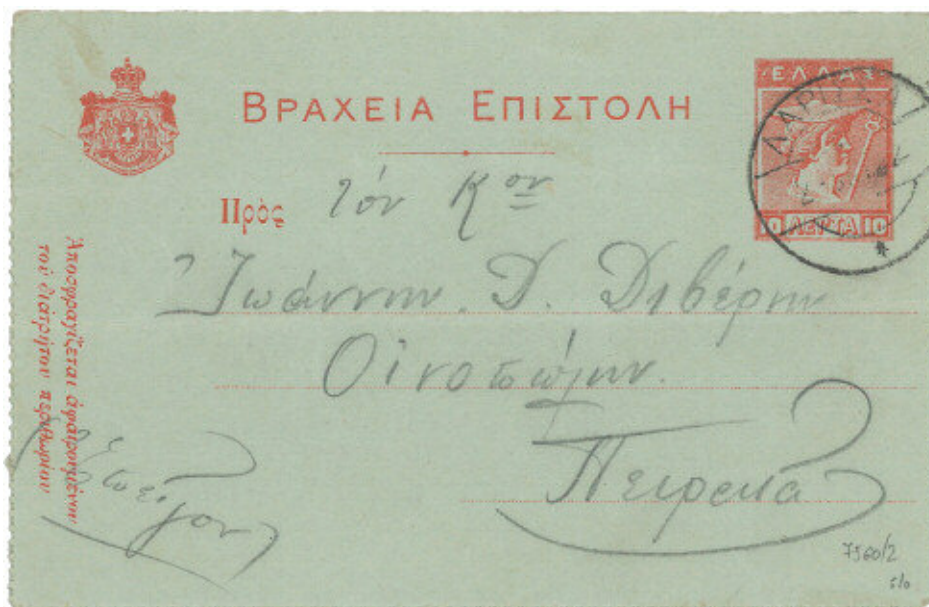 ΒΡΑΧΕΙΑ ΕΠΙΣΤΟΛΗ
ΕΛΛΑΣ
10 ΛΕΠΤΑ 10
ΛΑΡΙΣΑ
Πρὸς τόν Κον
Ἰωάννην Δ.
Οἰνοπώλην.
Πειραιᾶ
Ἀποσφραγίζεται ἀφαιρουμένου
τοῦ διατρήτου περιθωρίου
Ἐπεῖγον
7560/2